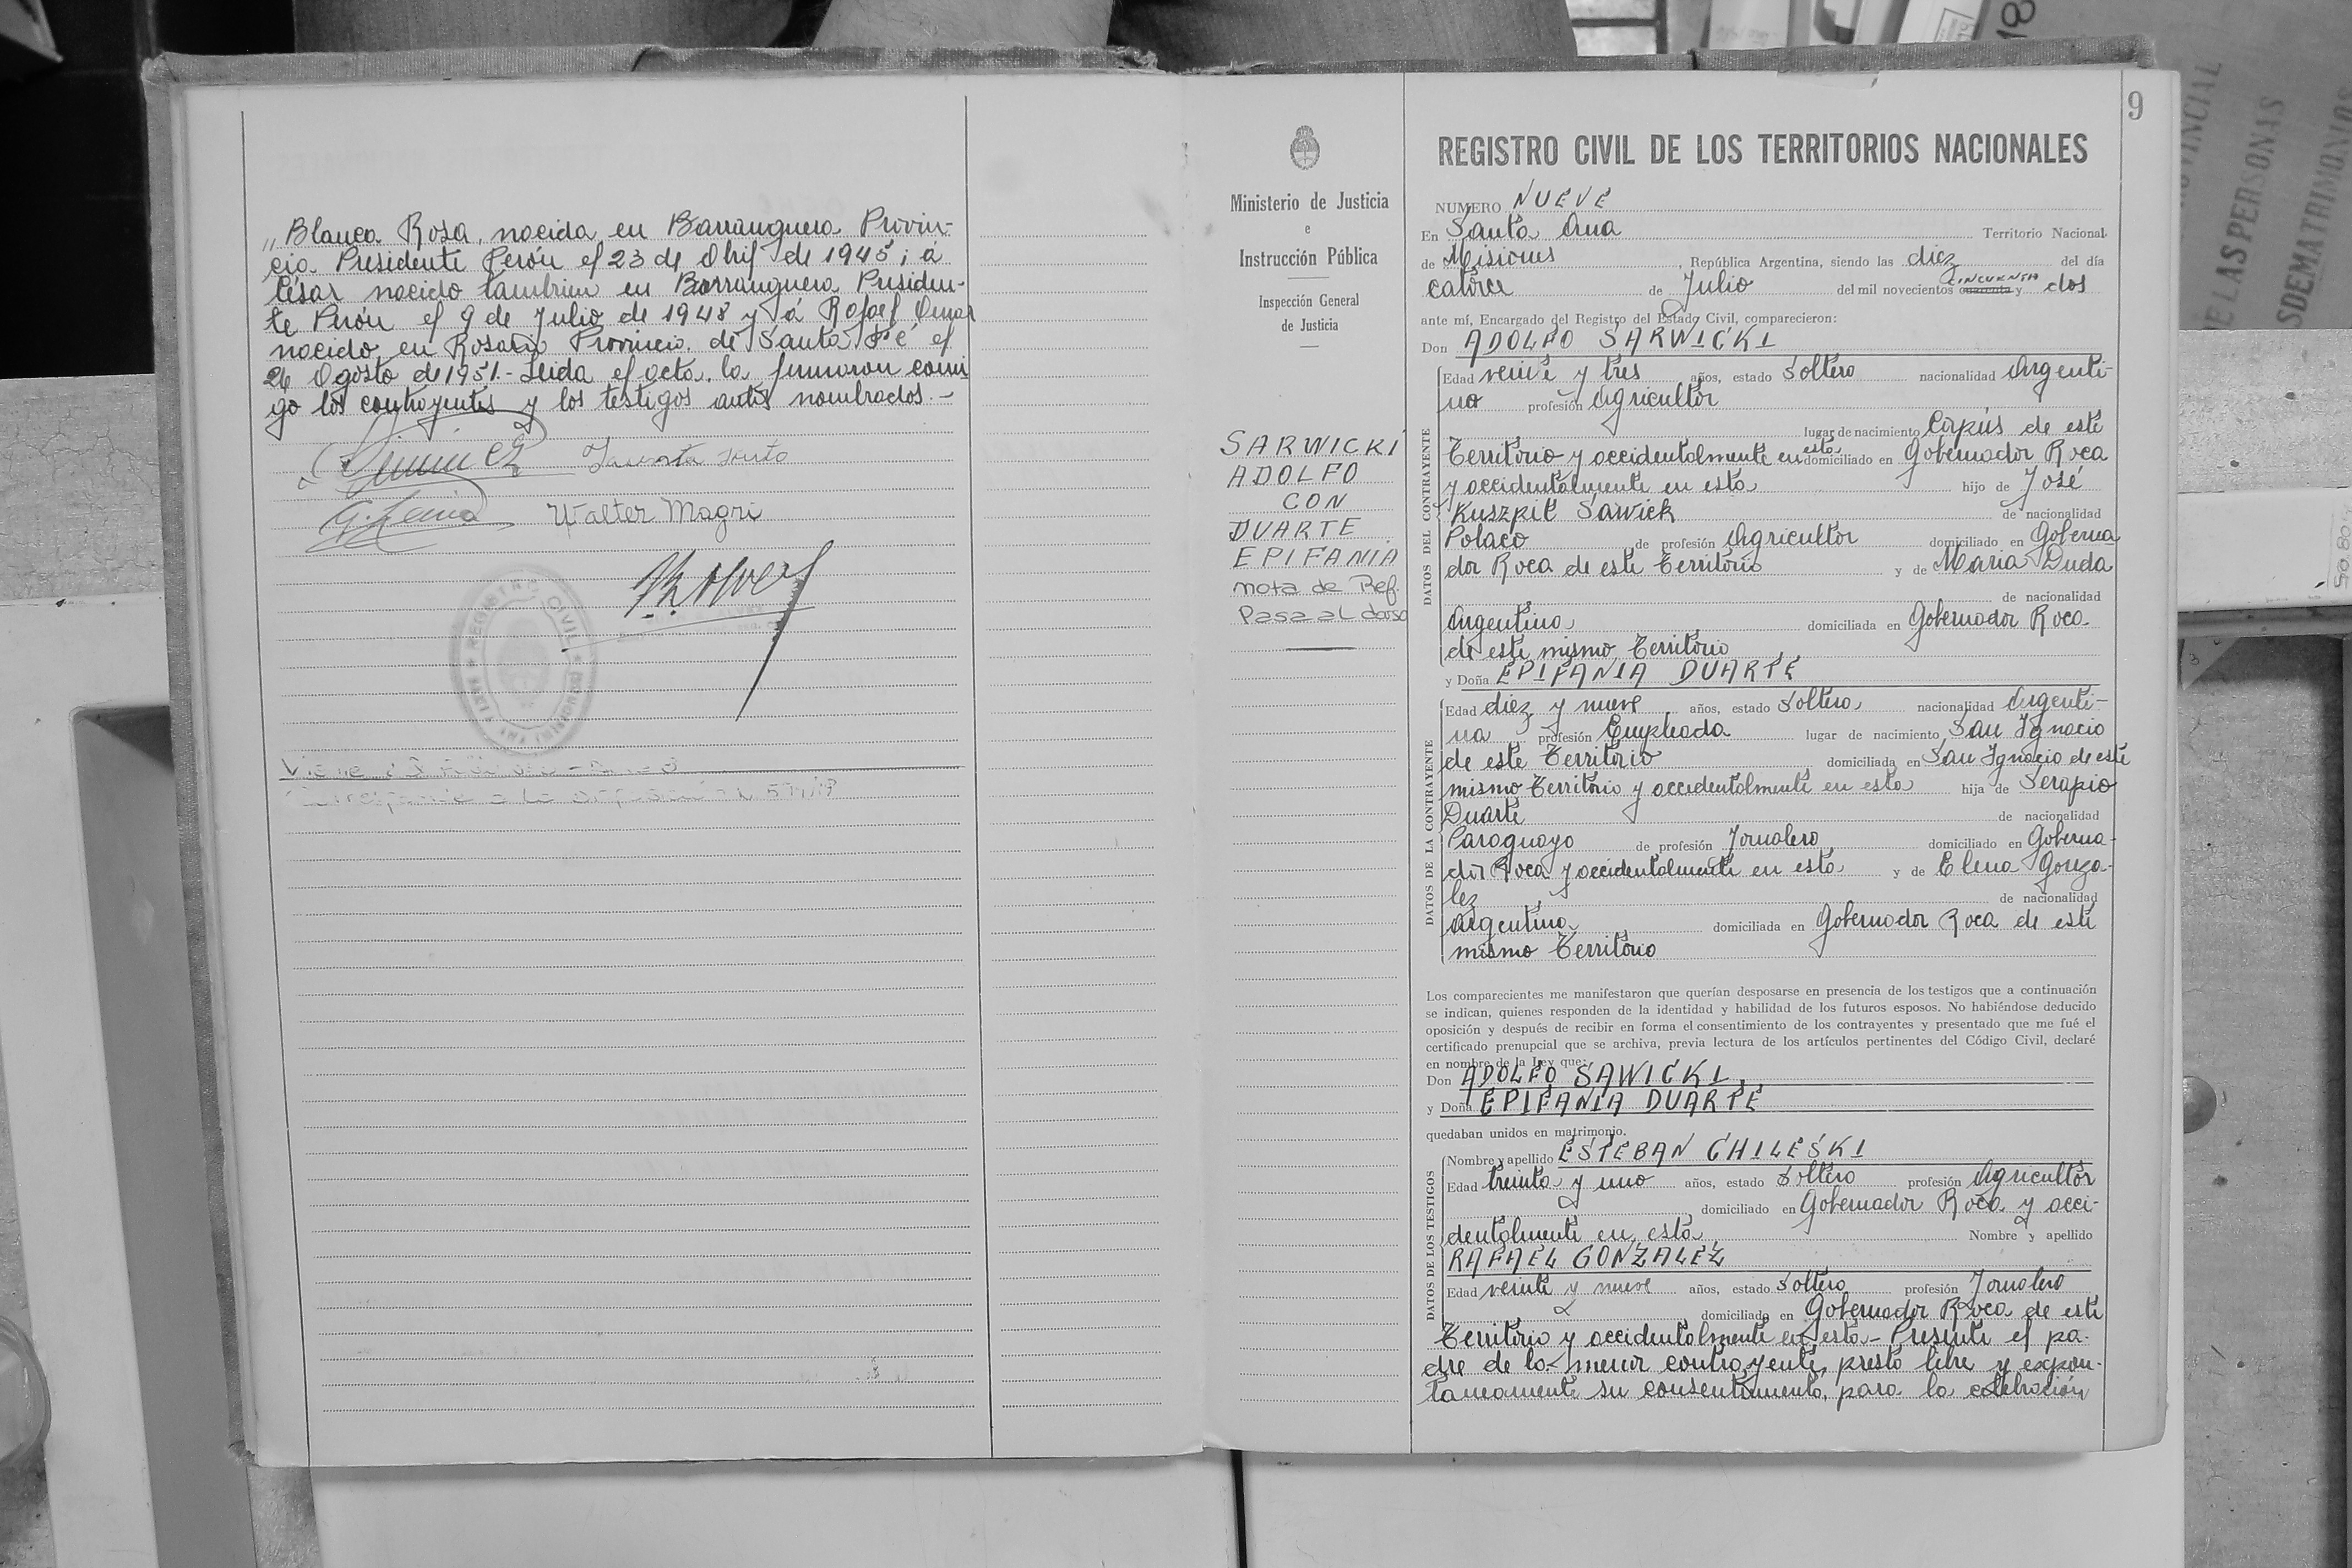 „ Blanca Rosa, nacida en Barranquera Provin-
cia Presidente Perón el 23 de Abril de 1945; á
César nacido tambien en Barranquera Presiden-
te Perón el 9 de Julio de 1948 y á Rafael Omar
nacido en Rosario Provincia de Santa Fé el
26 Agosto de 1951.- Leida el acta, la firmaron conmi
go los contrayentes y los testigos antes nombrados.-
Walter Magri
REGISTRO CIVIL
Ministerio de Justicia
e
Instrucción Pública
Inspección General
de Justicia
SARWICKI
ADOLFO
CON
DUARTE
EPIFANIA
nota de Ref.
Pasa al dorso
9
REGISTRO CIVIL DE LOS TERRITORIOS NACIONALES
NUMERO NUEVE
En Santa Ana Territorio Nacional
de Misiones, República Argentina, siendo las diez del día
catorce de Julio del mil novecientos cuarenta y CINCUENTA dos
ante mí, Encargado del Registro del Estado Civil, comparecieron:
Don ADOLFO SARWICKI
DATOS DEL CONTRAYENTE
Edad veinte y tres años, estado Soltero nacionalidad Argenti-
no profesión Agricultor
lugar de nacimiento Corpús de este
Territorio y accidentalmente en esta domiciliado en Gobernador Roca
y accidentalmente en esta hijo de José
Kuszpit Sawick de nacionalidad
Polaco de profesión Agricultor domiciliado en Goberna
dor Roca de este Territorio y de Maria Duda
de nacionalidad
Argentina domiciliada en Gobernador Roca
de este mismo Territorio
y Doña EPIFANIA DUARTE
DATOS DE LA CONTRAYENTE
Edad diez y nueve años, estado Soltera nacionalidad Argenti-
na profesión Empleada lugar de nacimiento San Ignacio
de este Territorio domiciliada en San Ignacio de este
mismo Territorio y accidentalmente en esta hija de Serapio
Duarte de nacionalidad
Paraguayo de profesión Jornalero domiciliado en Goberna-
dor Roca y accidentalmente en esta y de Elena Gonza-
lez de nacionalidad
Argentina domiciliada en Gobernador Roca de este
mismo Territorio
Los comparecientes me manifestaron que querían desposarse en presencia de los testigos que a continuación
se indican, quienes responden de la identidad y habilidad de los futuros esposos. No habiéndose deducido
oposición y después de recibir en forma el consentimiento de los contrayentes y presentado que me fué el
certificado prenupcial que se archiva, previa lectura de los artículos pertinentes del Código Civil, declaré
en nombre de la Ley que:
Don ADOLFO SAWICKI
y Doña EPIFANIA DUARTE
quedaban unidos en matrimonio.
DATOS DE LOS TESTIGOS
Nombre y apellido ESTEBAN CHILESKI
Edad treinta y uno años, estado Soltero profesión Agricultor
domiciliado en Gobernador Roca y acci-
dentalmente en esta Nombre y apellido
RAFAEL GONZALEZ
Edad veinte y nueve años, estado Soltero profesión Jornalero
domiciliado en Gobernador Roca de este
Territorio y accidentalmente en esta - Presente el pa-
dre de la menor contrayente, prestó libre y expon-
taneamente su consentimiento, para la celebración
DE LAS PERSONAS
S DE MATRIMONIOS